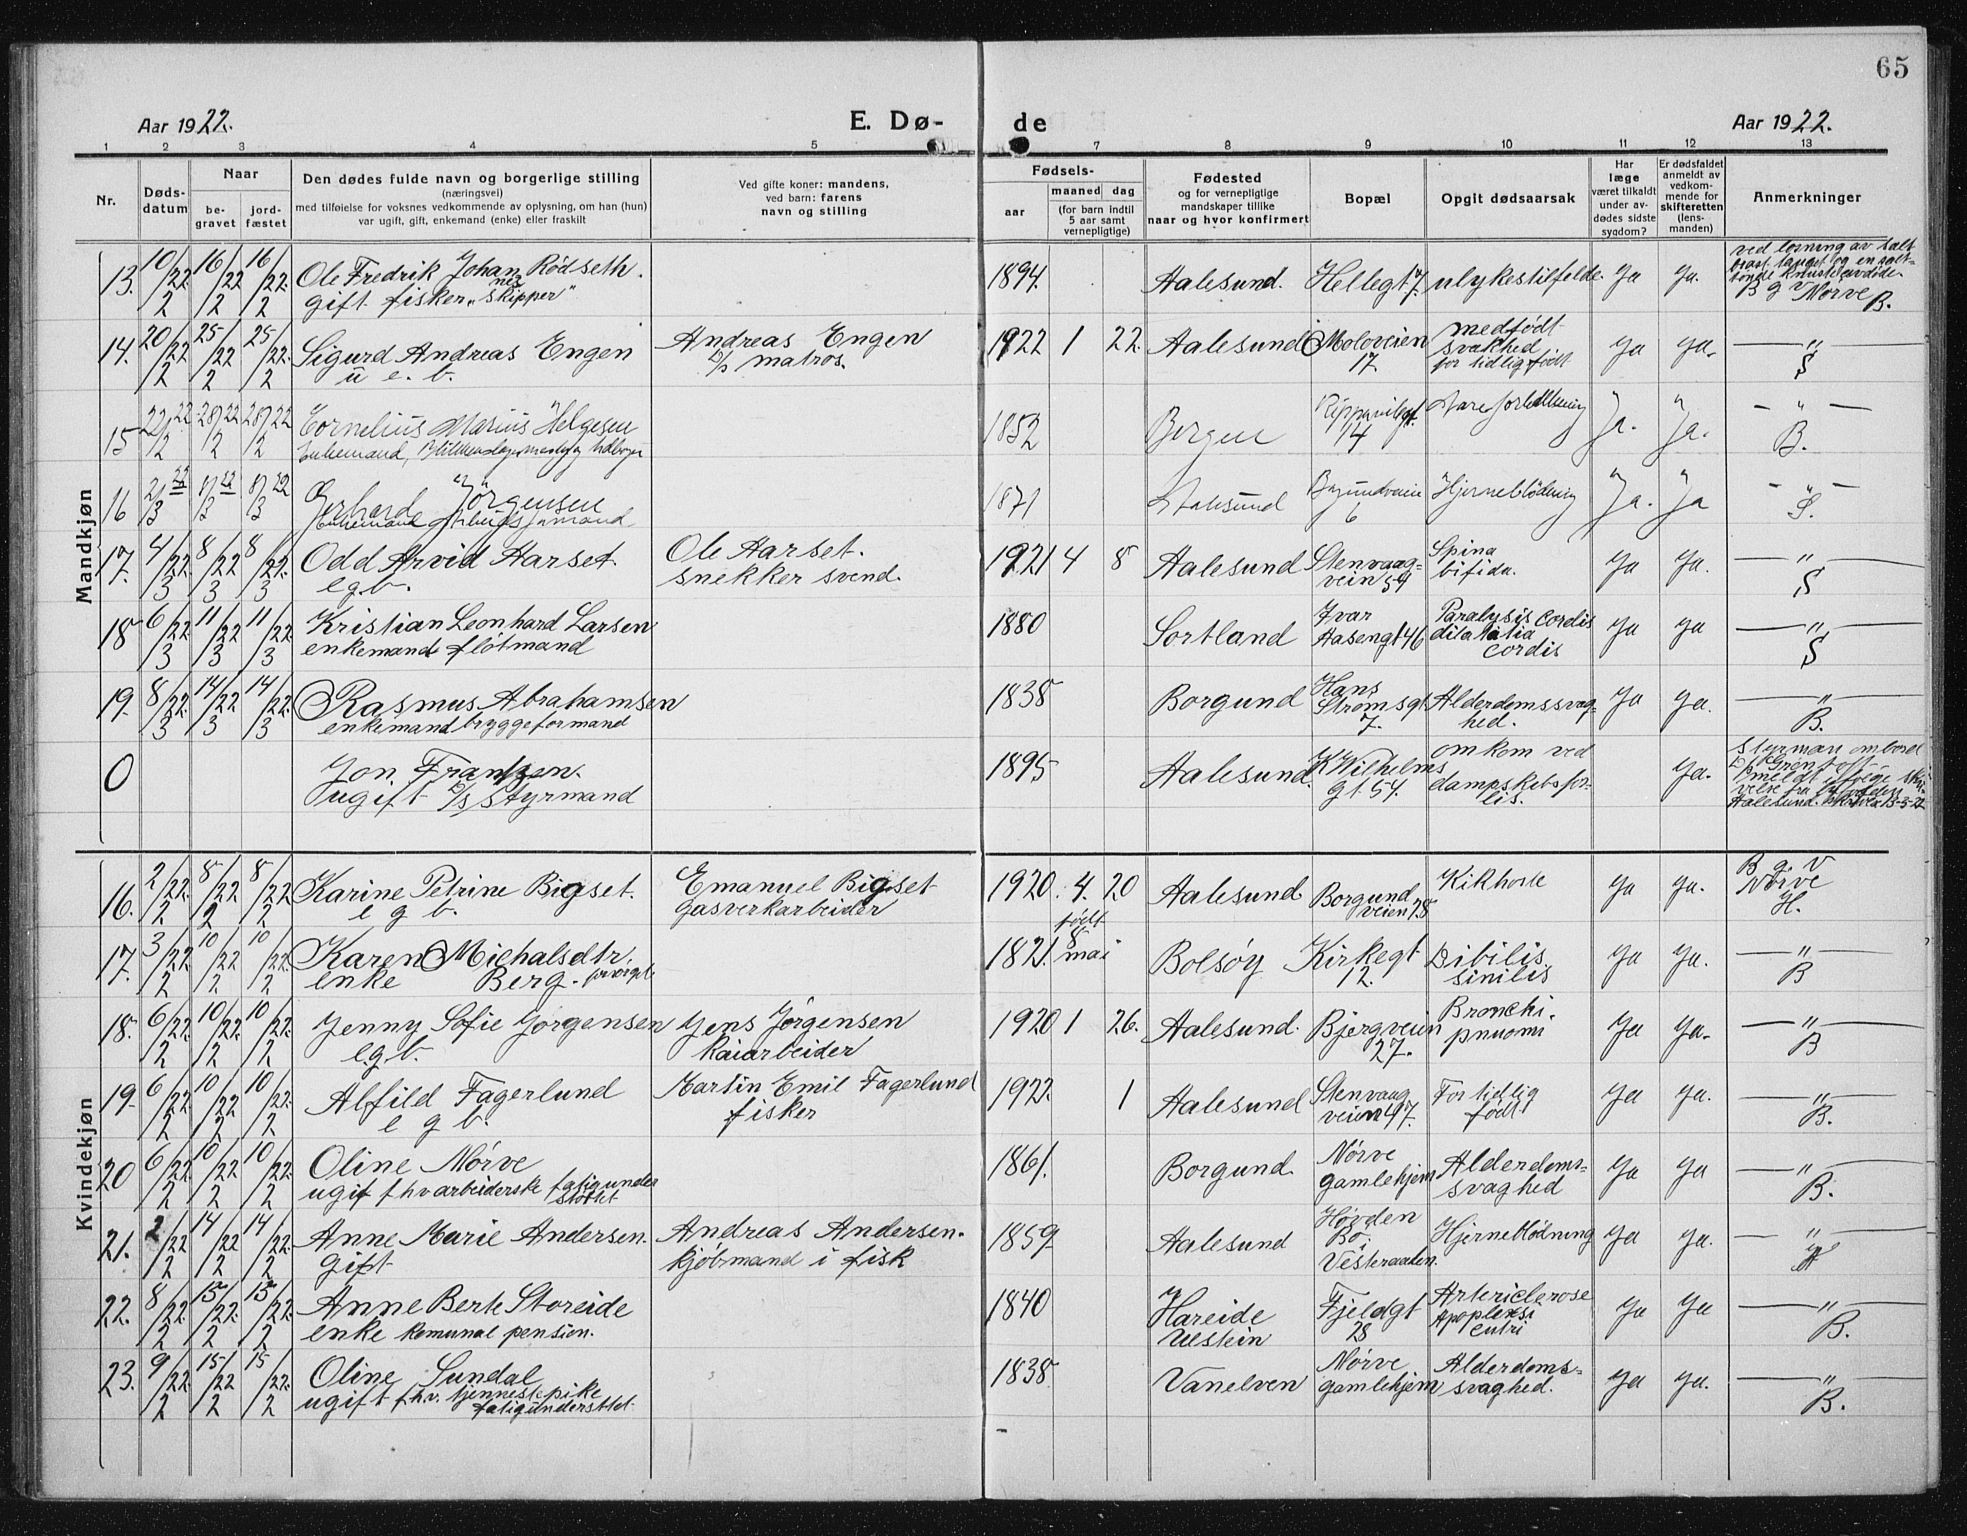 65
Aar 1922.
E. Dø-
de
Aar 1922.
1 2 3 4 5 7 8 9 10 11 12 13
Nr.
Døds-
datum
Naar
be-
gravet
jord-
fæstet
Den dødes fulde navn og borgerlige stilling
(næringsvei)
med tilføielse for voksnes vedkommende av oplysning, om han (hun)
var ugift, gift, enkemand (enke) eller fraskilt
Ved gifte koner: mandens,
ved barn: farens
navn og stilling
Fødsels-
aar
maaned dag
(for barn indtil
5 aar samt
vernepligtige)
Fødested
og for vernepligtige
mandskaper tillike
naar og hvor konfirmert
Bopæl
Opgit dødsaarsak
Har
læge
været tilkaldt
under av-
dødes sidste
sygdom?
Er dødsfaldet
anmeldt av
vedkom-
mende for
skifteretten
(lens-
manden)
Anmerkninger
Mandkjøn
13. 10/2 22. 16/2 22 16/2 22. Ole Fredrik Johan Rødseth. 1894. Aalesund. Hellegt 7. ulykestilfelde. Ja Ja. ved losning av salt
gift fisker "skipper" brast tauget og en salt-
tønde knuste avdøde.
B g V Nørve B.
14. 20/2 22 25/2 22 25/2 22. Sigurd Andreas Engen Andreas Engen 1922 1 22. Aalesund Moloveien medfødt Ja Ja. — " —
u e. b. D/S matros. 17. svakhed S
for tidlig født
15 22/2 22 28/2 22 28/2 22 Cornelius Marius Helgesen 1852 Bergen 14 Ja. Ja. — " —
Enkemand, B.
16 2/3 22 8/3 22 8/3 22 Gerhard Jörgensen 1871 Aalesund Borgundveien Hjerneblödning Ja. Ja — " —
Enkemand Arbeidsformand 6 S.
17. 4/3 22. 8/3 22 8/3 22. Odd Arvid Aarset. Ole Aarset. 1921 4 8 Aalesund Stenvaag- Spina Ja Ja. — " —
e g b. snekker svend. vein 59 bifida. S
18 6/3 22 11/3 22 11/3 22 Kristian Leonhard Larsen 1880 Sortland Ivar Paralysis Cordis Ja Ja — " —
enkemand fløtmand Aasengt 46 dilatatia S
cordis
19. 8/3 22. 14/3 22 14/3 22. Rasmus Abrahamsen 1838 Borgund Hans Alderdomssvag- Ja Ja. — " —
enkemand bryggeformand Strømsgt hed. B.
7.
0 Jon. Frantzen. 1895 Aalesund. K Wilhelms omkom ved Ja. Styrman ombord
ugift D/S Styrmand Gt. 54. dampskibsfor- D/S
lis. Anmeldt ifølge skri-
velse fra byfogden
Aalesund.
Kvindekjøn
16. 2/2 22. 8/2 22 8/2 22 Karine Petrine Bigset. Emanuel Bigset 1920. 4. 20 Aalesund Borgund Kikhoste Ja Ja. B g V
e g b. gasverkarbeider veien 78 Nørve
H.
17. 3/2 22. 10/2 22 10/2 22. Karen Michalsdtr. 1821. født 8 mai Bolsøy Kirkegt Dibilis Ja Ja. — " —
enke Berg. 12. sinilis B
18. 6/2 22. 10/2 22. 10/2 22. Jenny Sofie Jørgensen Jens Jørgensen 1920 1 26. Aalesund. Bjergveien Bronchi- Ja Ja. — " —
e.g.b. kaiarbeider 27. pnuomi B
19. 6/2 22. 10/2 22 10/2 22. Alfild Fagerlund Martin Emil Fagerlund 1922. 1 Aalesund Stenvaag For tidlig Ja Ja. — " —
e g b. fisker veien 97. født B.
20 6/2 22. 10/2 22 10/2 22. Oline Nørve 1861. Borgund. Nørve Alderdoms- Ja Ja — " —
ugift fhv arbeiderske fatigunder gamlehjem svaghed B.
støttet
21. 2/2 22 14/2 22 14/2 22. Anne Marie Andersen. Andreas Andersen. 1859 Aalesund Høvden Hjerneblødning Ja Ja. — " —
gift kjøbmand i fisk Bø i
Vesteraalen.
22. 8/2 22. 15/2 22. 15/2 22. Anne Berte Storeide 1840 Hareide Fjeldgt Artericlerose Ja Ja — " —
enke komunal pension. Ulstein 28 Apoplexsi B.
23. 9/2 22. 15/2 22 15/2 22. Oline Sundal 1838 Vanelven Nørve Alderdoms- Ja Ja. — " —
ugift f.h.v. tjennestepike gamlehjem svaghed. B.
fatigunderstttet.